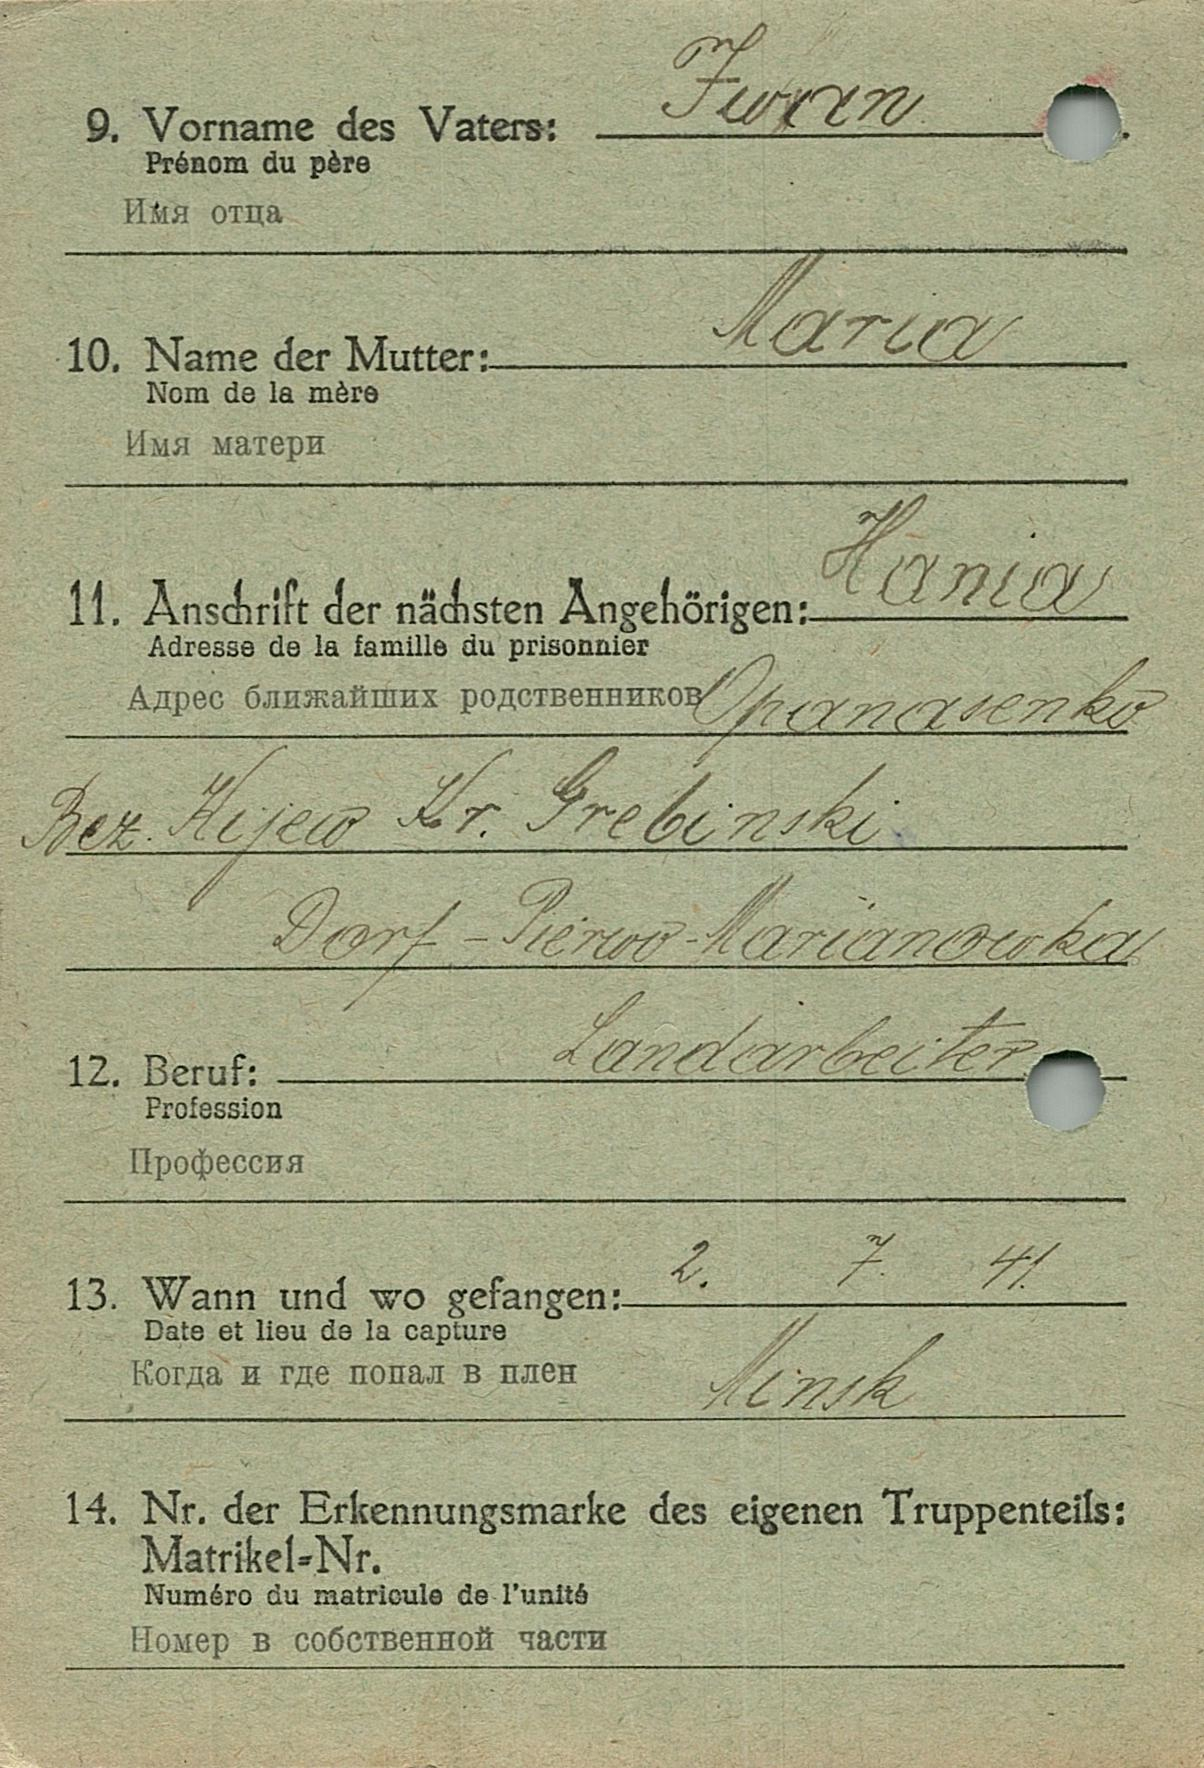 9. Vorname des Vaters: Iwan
Prénom du père
Имя отца
10. Name der Mutter: Maria
Nom de la mère
Имя матери
11. Anschrift der nächsten Angehörigen: Hania
Adresse de la famille du prisonnier
Адрес ближайших родственников Opanasenko
Bez. Kijew Kr. Grebinski
Dorf - Pierwo-Marianowka
12. Beruf: Landarbeiter
Profession
Профессия
13. Wann und wo gefangen: 2. 7. 41.
Date et lieu de la capture
Когда и где попал в плен Minsk
14. Nr. der Erkennungsmarke des eigenen Truppenteils:
Matrikel-Nr.
Numéro du matricule de l'unité
Номер в собственной части